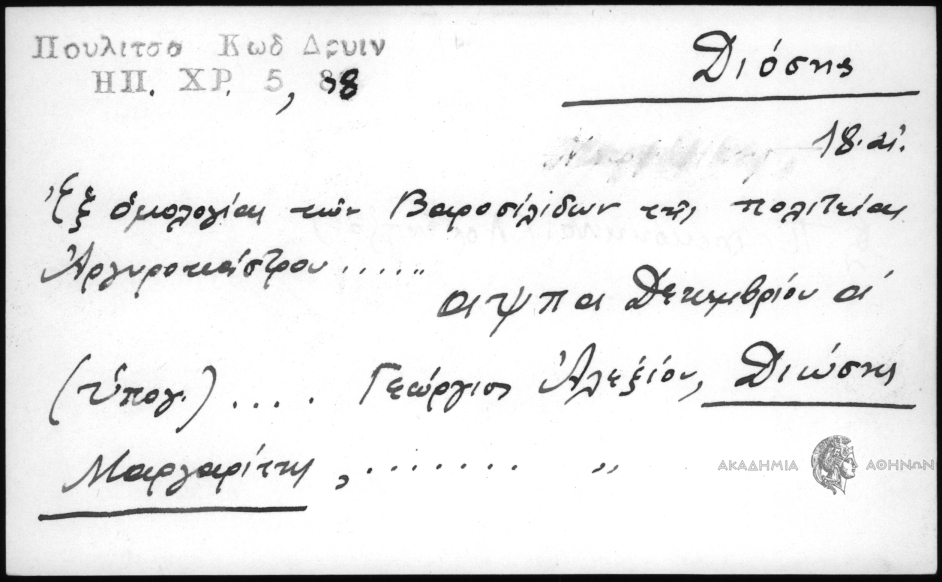 Πουλιτσα Κωδ Δρυιν
ΗΠ. ΧΡ. 5, 88
Διόσης
18. αἰ.
Ἐξ ὁμολογίας τῶν Βαροσιλίδων τῆς πολιτείας
Ἀργυροκάστρου ......
αψπα Δεκεμβρίου α΄
(ὑπογ.) .... Γεώργιος Ἀλεξίου, Διώσης
Μαργαρίτης, ....... "
ΑΚΑΔΗΜΙΑ ΑΘΗΝΩΝ